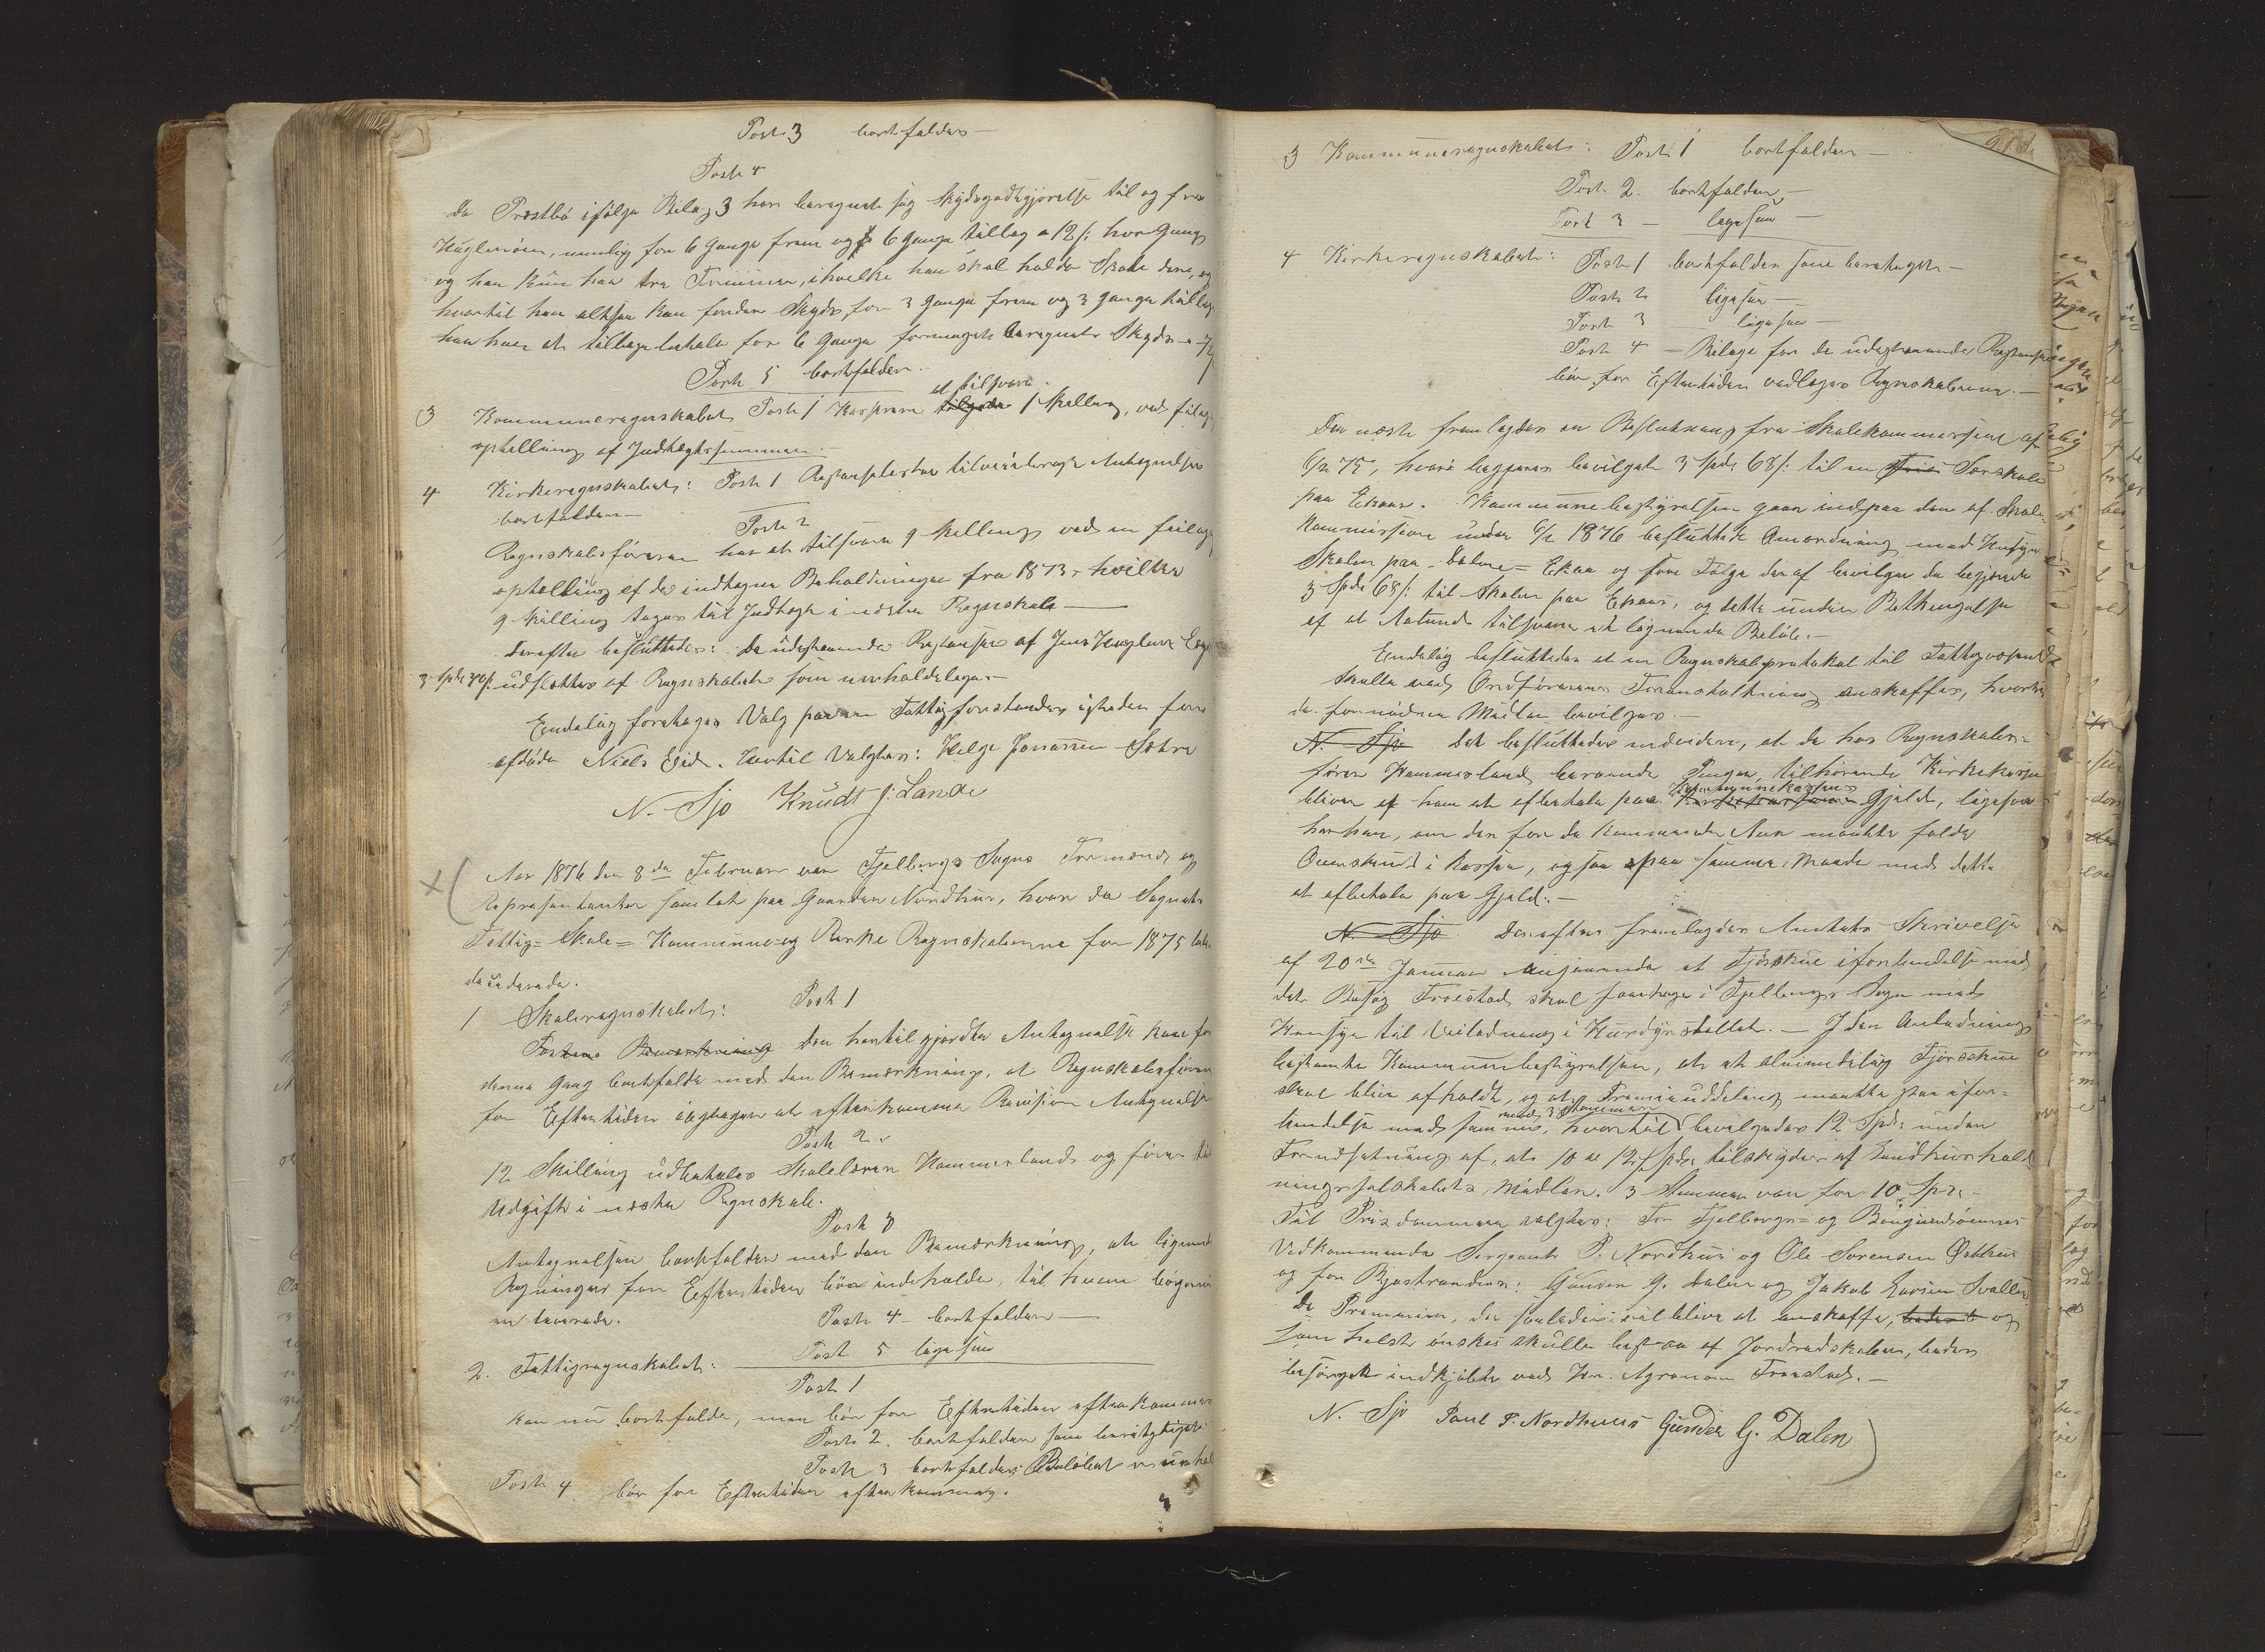 Post 3 bortfalder –
Post 4
Da Prestbø ifølge Bilag 3 har beregnet sig Skydsgodtgjørelse til og fra
Huglenøen, nemlig for 6 Gange frem og 6 Gange tillag a 12 s: hver Gang
og han kun har tre Terminer, i hvilke han skal holde Skole der, og
hvortil han altsaa kan fordre Skyds for 3 Gange frem og 3 Gange tillag
han har at tilbagebetale for 6 Gange formeget beregnet Skyds
Post 5 bortfalder.
3 Kommuneregnskabet Post 1 Kasserer tilgode at tilsvare 1 Skilling, ved feilag
optælling af Indtægtssummen.
4 Kirkeregnskabet: Post 1 Restanselister tilveiebragt Antegnelsen
bortfalder –
Post 2
Regnskabsføreren har at tilsvare 9 Skilling ved en feilag
optælling af de indtagne Beholdninger fra 1873, hvilke
9 Skilling tages til Indtægt i næste Regnskab –
Derefter besluttedes: De udestaaende Restanser af Jens Huglen
3 Spd 30 s. udslettes af Regnskabet som uerholdelige. –
Endelig foretages Valg paa en Fattigforstander istedenfor
afdøde Niels Eid. Hertil valgtes: Helge Jonassen Sætre
N. Sjo Knudt J: Lande
Aar 1876 den 8de Februar var Fjelbergs Sogns Formænd og
Repræsentanter samlet paa Gaarden Nordhus, hvor da Sognets
Fattig= Skole= Kommune= og Kirke Regnskaberne for 1875 ble
desiderede.
1 Skoleregnskabet: Post 1
Den hertil gjordte Antegnelse kan for
denne Gang bortfalde med den Bemærkning, at Regnskabsføreren
for Eftertiden iagtager at efterkomme Revisions Antegnelse
Post 2.
12 Skilling udbetales Skolelærer Hammerland og føres til
Udgift i næste Regnskab.
Post 3
Antegnelsen bortfalder med den Bemærkning, at lignende
Regninger for Eftertiden bør indeholde, til hvem bøgerne
er leverede.
Post 4 – bortfalder –
Post 5 ligesaa
2. Fattigregnskabet:
Post 1
kan nu bortfalde, men bør for Eftertiden efterkommes
Post 2. bortfalder som berigtiget
Post 3 bortfalder Beløbet er
Post 4 bør for Eftertiden efterkommes.
3 Kommuneregnskabet: Post 1 bortfalder –
Post 2. bortfalder –
Post 3 – ligesaa –
4 Kirkeregnskabet: Post 1 bortfalder som berettiget –
Post 2 ligesaa –
Post 3 ligesaa –
Post 4 – Bilage for de udestaaende Restanser
bør for Eftertiden vedlægges Regnskaberne. –
Den næste fremlagdes en Beslutning fra Skolekommissionen af
6/12 75, hvori begjæres bevilget 3 Spd 68 s: til en Særskole
paa Ekaas. Kommunebestyrelsen gaar ind paa den af Skole-
kommissionen under 6/1 1876 besluttede Anordning med Hensyn
Skolen paa Dalene= Ekaa og som Følge deraf bevilges de begjærede
3 Spd 68 s: til Skolen paa Ekaas, og dette under Betingelse
af at Amtet tilsvarer et lignende Beløb. –
Endelig besluttedes at en Regnskabsprotokol til Fattigvæsenet
skulle ved Ordførerens Foranstaltning anskaffes, hvortil
de fornødne Midler bevilges. –
N. Sjo Det besluttedes endvidere, at de hos Regnskabs=
fører Hammerland beroende Penge, tilhørende Kirkekassen
bliver af ham at afbetale paa Kommunekassens Gjeld, ligesaa
har han, om der for de kommende Aar maatte falde
Overskud i Kassen, ogsaa paa samme Maade med dette
at afbetale paa Gjeld. –
N. Sjo. Derefter fremlagdes Amtets Skrivelse
af 20de Januar angaaende at Fjøsskue i forbindelse med
det Besøg Troestad skal foretage i Fjelbergs Sogn med
Hensyn til Veiledning i Husdyrstellet. – I den Anledning
bestemte Kommunebestyrelsen, at et almindelig Fjøsskue
skal blive afholdt, og at Præmieuddeling maatte ske i for-
bindelse med samme, hvortil med 3 Stemmer bevilgedes 12 Spd: under
Forudsætning af, at 10 a 12 Spd tilskydes af Landhushold
ningsselskabets Midler. 3 Stemmer var for 10 Spd. –
Til Prisdommere valgtes: For Fjelbergs= og Borgundøernes
Vedkommende Sergeant P. Nordhus og Ole Sørensen Østhus
og for Bjostranden: Gunder G. Dalen og Jakob Larsen Svollen
De Præmier, der saaledes vil blive at anskaffe, og
som helst ønskes skulle bestaa af Jordredskaber, bedes
besørget indkjøbte ved Hr. Agronom Troestad. –
N. Sjo Paul P. Nordhuus Gunder G. Dalen